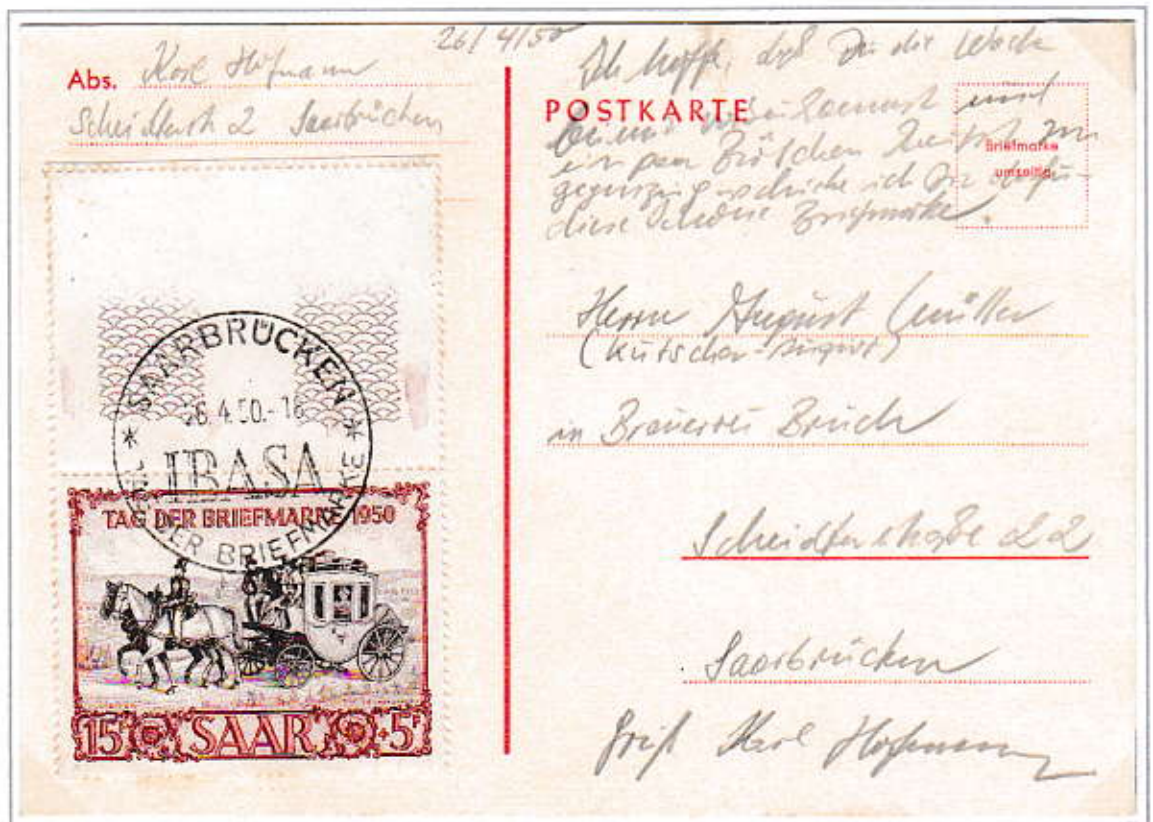 26/4/50
Abs. Karl Hofmann
Scheidterstr 2 Saarbrücken
SAARBRÜCKEN
26.4.50.-16
IBASA
TAG DER BRIEFMARKE
TAG DER BRIEFMARKE 1950
15 SAAR +5F
Ich hoffe, daß Du die Woche
POSTKARTE
Briefmarke
umseitig
und
ein paar
schicke ich Dir
diese schöne Briefmarke.
Herrn August Müller
(Kutscher-August)
in Brauerei Bruch
Scheidterstraße 22
Saarbrücken
Gruß Karl Hofmann